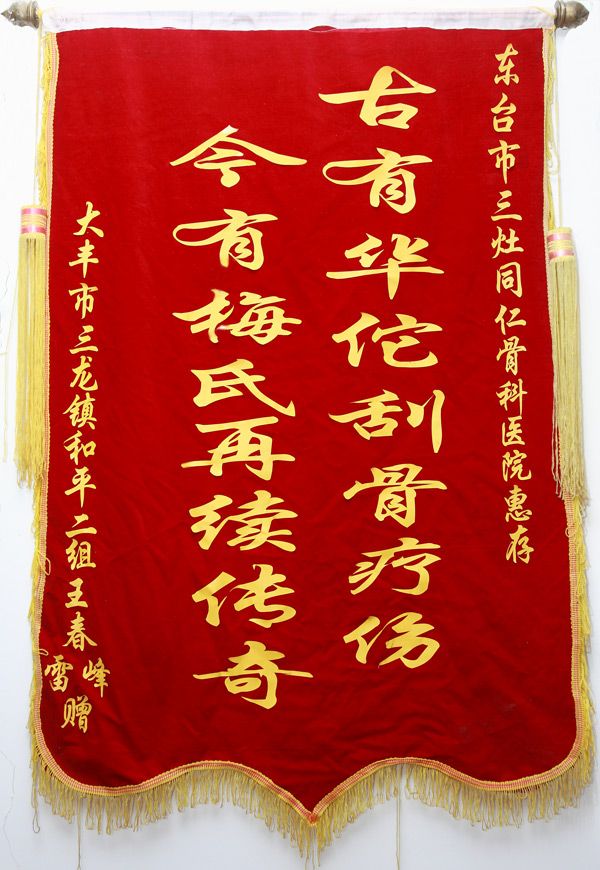 东台市三灶同仁骨科医院惠存
古有华佗刮骨疗伤
今有梅氏再续传奇
大丰市三龙镇和平二组王春雷峰赠